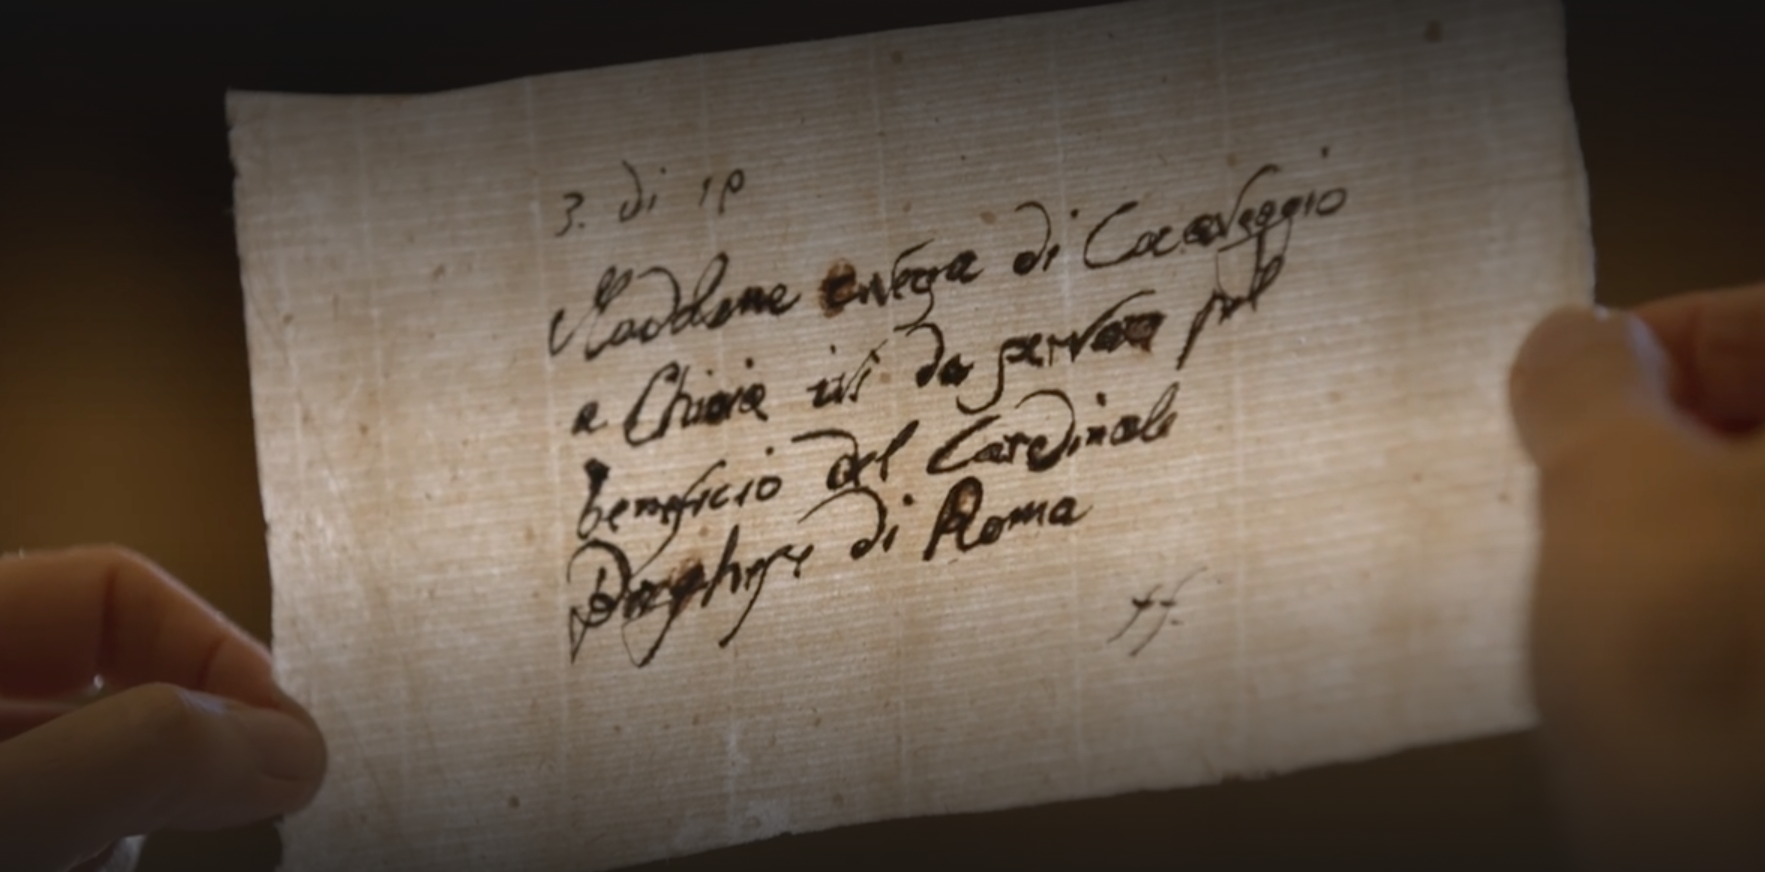 3. di 10
Maddalena reversa di Caravaggio
a Chiaia ivi da servare pel
beneficio del Cardinale
Borghese di Roma
ff.